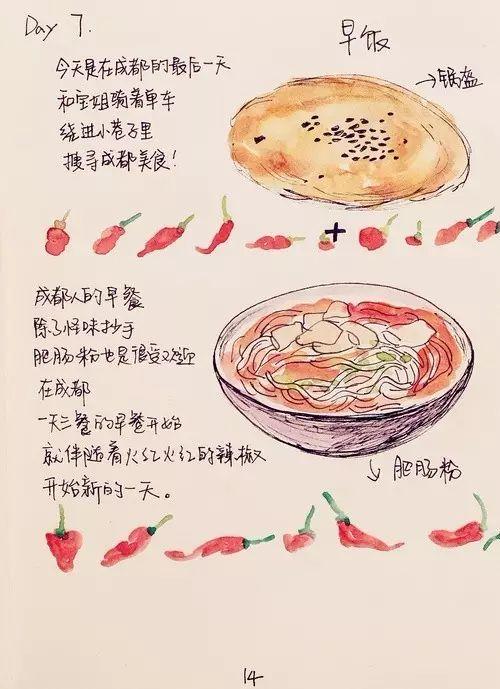 Day 7.
早饭
今天是在成都的最后一天
和宝姐骑着单车
绕进小巷子里
搜寻成都美食!
→锅盔
+
成都人的早餐
除了怪味抄手
肥肠粉也是很受欢迎
在成都
一天三餐的早餐开始
就伴随着火红火红的辣椒
开始新的一天。
↓肥肠粉
14